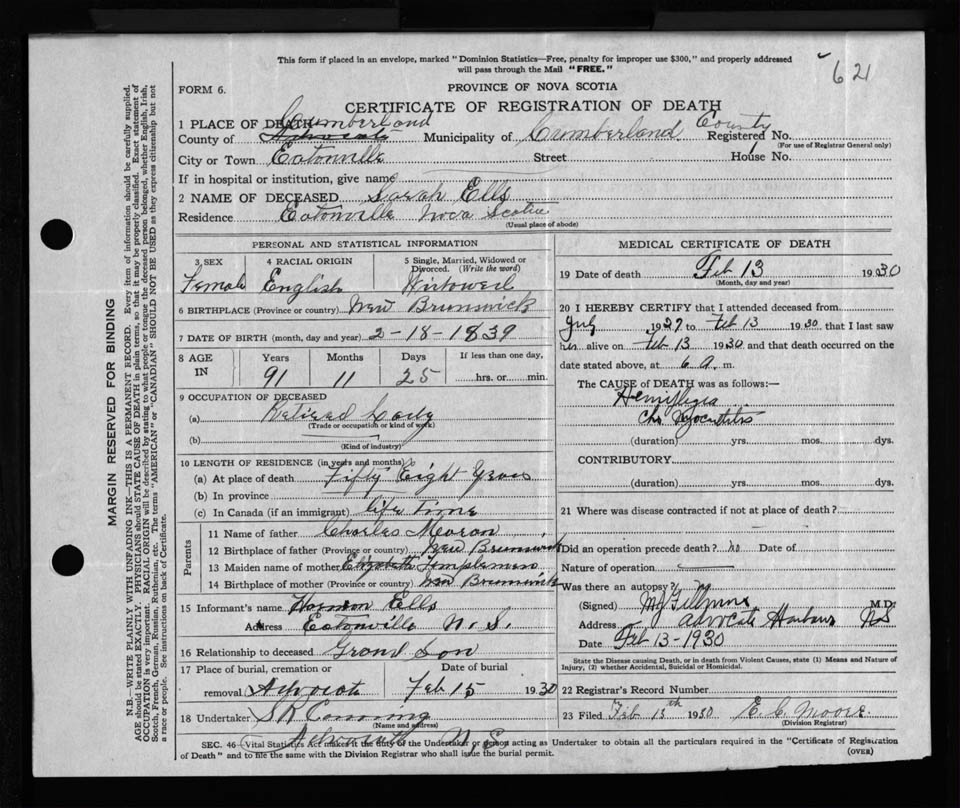 This form if placed in an envelope, marked "Dominion Statistics—Free, penalty for improper use $300," and properly addressed
will pass through the Mail "FREE."
621
FORM 6.
PROVINCE OF NOVA SCOTIA
CERTIFICATE OF REGISTRATION OF DEATH
1 PLACE OF DEATH Cumberland
County of Advocate Municipality of Cumberland County Registered No.
(For use of Registrar General only)
City or Town Eatonville Street House No.
If in hospital or institution, give name
2 NAME OF DECEASED Sarah Ells
Residence Eatonville Nova Scotia
(Usual place of abode)
PERSONAL AND STATISTICAL INFORMATION
3 SEX 4 RACIAL ORIGIN 5 Single, Married, Widowed or
Divorced. (Write the word)
Female English Widowed
6 BIRTHPLACE (Province or country) New Brunswick
7 DATE OF BIRTH (month, day and year) 2-18-1839
8 AGE IN Years Months Days If less than one day,
91 11 25 hrs. or min.
9 OCCUPATION OF DECEASED
(a) Retired Lady
(Trade or occupation or kind of work)
(b)
(Kind of industry)
10 LENGTH OF RESIDENCE (in years and months)
(a) At place of death Fifty Eight Years
(b) In province
(c) In Canada (if an immigrant) life Time
Parents
11 Name of father Charles
12 Birthplace of father (Province or country) New Brunswick
13 Maiden name of mother Elizabeth Templeman
14 Birthplace of mother (Province or country) New Brunswick
15 Informant's name Ells
Address Eatonville N.S.
16 Relationship to deceased Grand Son
17 Place of burial, cremation or Date of burial
removal Advocate Feb 15 1930
18 Undertaker S R
(Name and address)
Advocate N.S.
MEDICAL CERTIFICATE OF DEATH
19 Date of death Feb 13 1930
(Month, day and year)
20 I HEREBY CERTIFY that I attended deceased from
July 1929 to Feb 13 1930 that I last saw
her alive on Feb 13 1930 and that death occurred on the
date stated above, at 6 a. m.
The CAUSE of DEATH was as follows:—
Hemiplegia
Chr Myocarditis
(duration) yrs. mos. dys.
CONTRIBUTORY
(duration) yrs. mos. dys.
21 Where was disease contracted if not at place of death?
Did an operation precede death? no Date of
Nature of operation
Was there an autopsy? no
(Signed) M.D.
Address Advocate Harbour NS
Date Feb 13-1930
State the Disease causing Death, or in death from Violent Causes, state (1) Means and Nature of
Injury, (2) whether Accidental, Suicidal or Homicidal.
22 Registrar's Record Number
23 Filed Feb 15th 1930 E. C. Moore.
(Division Registrar)
SEC. 46—(Vital Statistics Act makes it the duty of the Undertaker or person acting as Undertaker to obtain all the particulars required in the "Certificate of Registration
of Death" and to file the same with the Division Registrar who shall issue the burial permit.
(OVER)
MARGIN RESERVED FOR BINDING
N.B.—WRITE PLAINLY WITH UNFADING INK—THIS IS A PERMANENT RECORD. Every item of information should be carefully supplied.
AGE should be stated EXACTLY. PHYSICIANS should STATE CAUSE OF DEATH in plain terms, so that it may be properly classified. Exact statement of
OCCUPATION is very important. RACIAL ORIGIN will be described by stating to what people or tongue the deceased person belonged, whether English, Irish,
Scotch, French, German, Russian, Ruthenian, etc. The terms "AMERICAN" or "CANADIAN" SHOULD NOT BE USED as they express citizenship but not
a race or people. See instructions on back of Certificate.